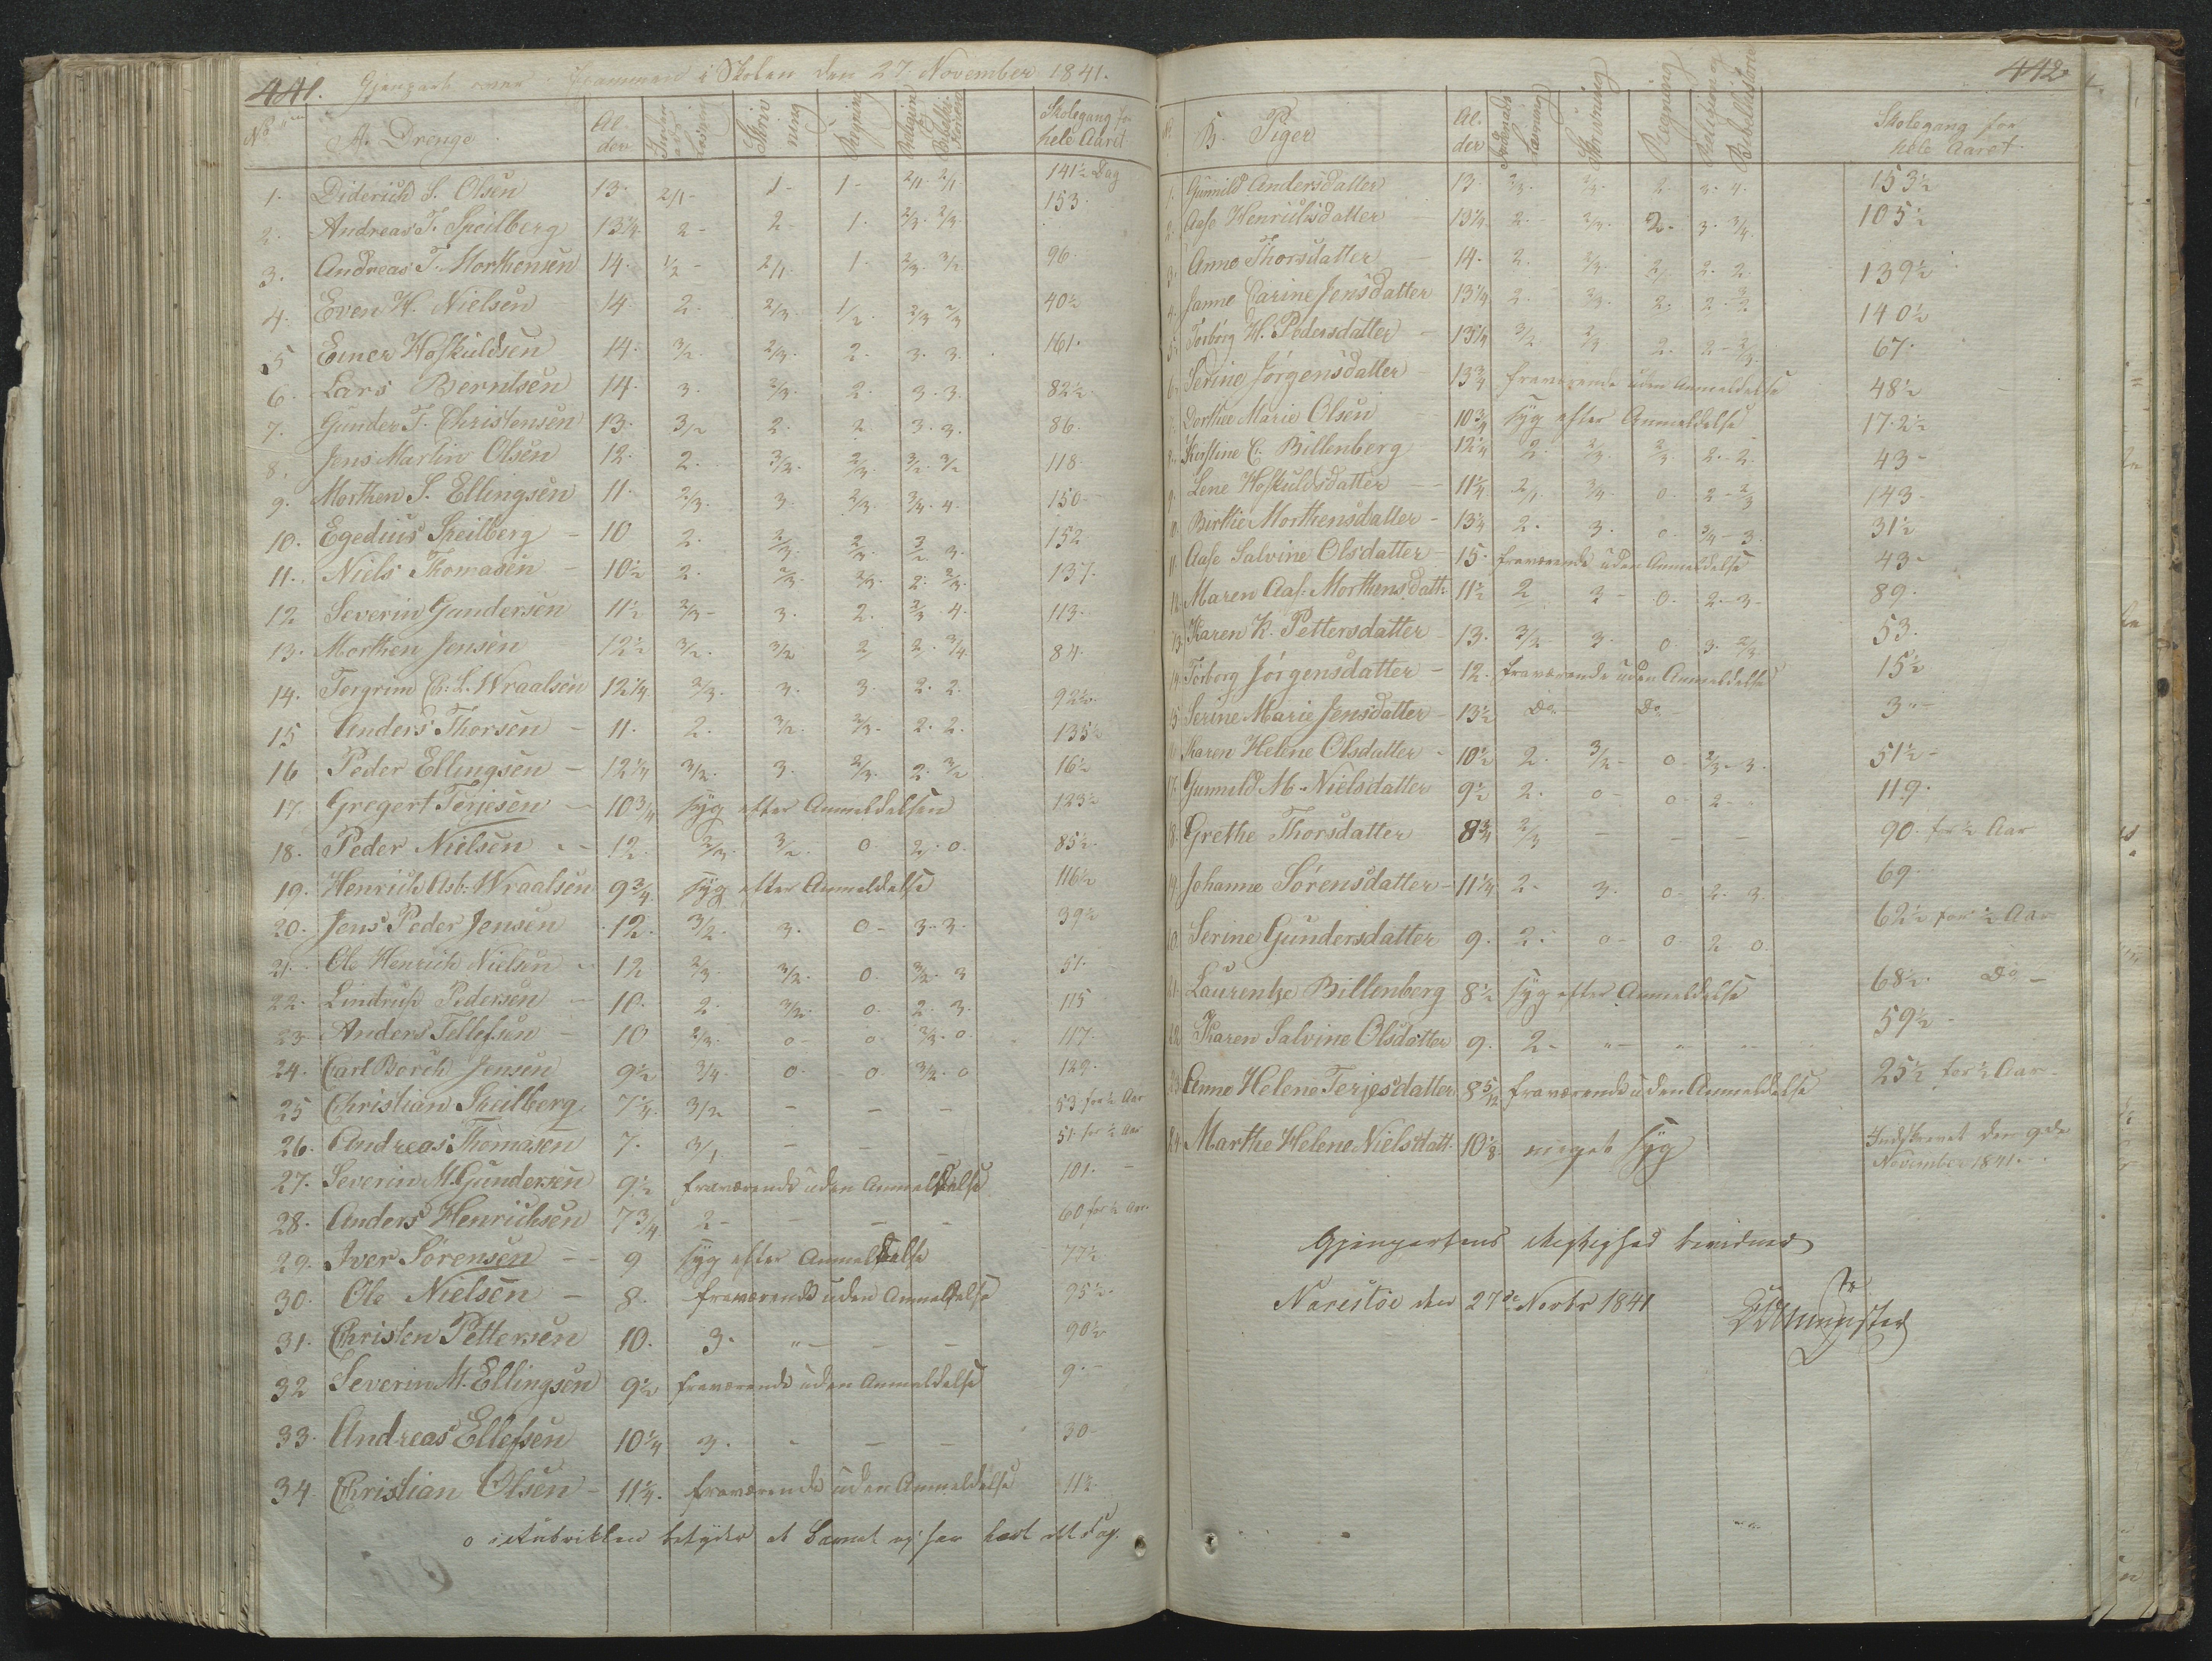 441.
Gjenpart over Examen i Skolen den 27 November 1841.
No
A. Drenge
Alder
Indenad Læsning
Skrivning
Regning
Religion og Bibelhistorie
Skolegang for hele Aaret
1. Diderich S. Olsen 13. 2/1 - 1 - 1 - 2/1. 2/1. 141½ Dag
2. Andreas T. Speilberg 13¼ 2 - 2 - 1. 2/3. 2/3. 153.
3. Andreas T. Morthensen 14. ½ - 2/1 1 - 2/3. 3/2 96.
4. Even H. Nielsen 14. 2. 2/3. 1/2. 2/3 2/3 40½
5 Einer Hoskuldsen 14. 3/2. 2/3. 2. 3. 3. 161.
6. Lars Berntsen 14. 3. 2/3. 2. 3. 3. 82½
7. Gunder T. Christensen 13. 3/2 2. 2. 3. 3. 86.
8. Jens Martin Olsen 12. 2. 3/2. 2/3. 3/2. 3/2 118.
9. Morthen S. Ellingsen 11. 2/3. 3. 2/3. 3/4. 4. 150-
10. Egedius Speilberg - 10 2. 2/3. 2/3. 3/2. 3. 152
11. Niels Thomasen - 10½ 2. 2/3. 2/3. 2. 2/3. 137.
12 Severin Gundersen 11½ 2/3 - 3. 2. 2/3 4. 113.
13. Morthen Jensen 12½ 3/2. 3/2 2 2. 3/4 84.
14. Tergrim C. L. Wraalsen 12¼ 2/3. 3. 3. 2. 2. 92½.
15 Anders Thorsen - 11. 2. 3/2. 2/3. 2. 2. 135½
16 Peder Ellingsen - 12¼ 3/2. 3. 2/3. 2. 3/2 16½
17. Gregert Terjesen - 10¾ syg efter Anmeldelsen 123½
18. Peder Nielsen - 12. 2/3. 3/2. 0. 2. 0. 85½.
19. Henrich Asb. Wraalsen 9¾ syg efter Anmeldelse 116½
20. Jens Peder Jensen 12. 3/2. 3. 0 - 3. 3. 39½
21. Ole Henrich Nielsen 12 2/3. 3/2. 0. 3/2. 3 51.
22. Lindrup Pedersen 10. 2. 3/2. 0. 2. 3. 115
23 Anders Tellefsen - 10 2/3. 0 - 0 3/2. 0. 117.
24. Carl Borch Jensen 9½ 3/4. 0. - 0. 3/2. 0 129.
25 Christian Speilberg 7¼. 3/2 - - - 53 for ½ Aar
26. Andreas Thomasen 7. 3/1 - - - 51. for ½ Aar
27. Severin M. Gundersen 9½ fraværende uden Anmeldelse 101. -
28. Anders Henrichsen 7¾ 2 - - - - 60 for ½ Aar
29. Iver Sørensen - 9 syg efter Anmeldelse 77½
30. Ole Nielsen - 8. fraværende uden Anmeldelse 95½.
31. Christen Pettersen 10. 3. " - - - 90½
32 Severin M. Ellingsen 9½ fraværende uden Anmeldelse 9. -
33. Andreas Ellefsen 10¼ 3. - - - 30 -
34. Christian Olsen - 11¼. fraværende uden Anmeldelse 11½.
o i Rubrikken betyder at Barnet ej har lært det Fag.
442
No
B. Piger
Alder
Indenads Læsning
Skrivning
Regning
Religion og Bibelhistorie
Skolegang for hele Aaret.
1. Gunnild Andersdatter 13. 2/3. 2/3. 2 3. 4. 153½
2. Aase Henrichsdatter 13¼. 2. - 2/3. 2. 3. 3/4. 105½
3. Anne Thorsdatter - 14. 2. 2/3. 2/ 2. 2. 139½
4. Janne Carine Jensdatter 13¼ 2. 2/3. 2. 2. 3/2 140½
5. Torborg H. Pedersdatter - 13¼ 3/2 2/3 2. 2 - 2/3. 67.
6. Serine Jørgensdatter - 13¾ fraværende uden Anmeldelse 48½
7. Dorthee Marie Olsen 10¾ syg efter Anmeldelse 17.2½
8. Kirstine C. Billenberg 12¼ 2. 2/3. 2/3. 2. 2. 43 -
9. Lene Hoskuldsdatter - 11¼. 2/1 3/4 0. 2 - 2/3 143 -
10. Birthe Morthensdatter - 13¼ 2. 3. 0. 3/4 - 3. 31½
11. Aase Salvine Olsdatter 15. fraværende uden Anmeldelse 43 -
12. Maren Aas. Morthensdatt. 11½ 2 3 - 0. 2. 3. 89.
13. Karen K. Pettersdatter 13. 3/2 3. 0 3. 2/3. 53.
14. Torborg Jørgensdatter - 12. fraværende uden Anmeldelse 15½
15 Serine Marie Jensdatter - 13½ Do. - Do - 3 " -
16. Karen Helene Olsdatter - 10½ 2. 3/2 - 0 - 2/3 - 3. 51½ -
17. Gunnild M. Nielsdatter 9½ 2. 0 - 0. 2 - 119.
18. Grethe Thorsdatter 8¾ 2/3 - - - 90. for ½ Aar
19. Johanne Sørensdatter - 11¼ 2 - 3. 0 - 2. 3. 69 -
20. Serine Gundersdatter 9. 2. 0 - 0. 2 0. 62½ for ½ Aar
21. Laurentze Billenberg 8½ syg efter Anmeldelse 68½. Do -
22. Karen Salvine Olsdatter 9. 2 - " - - - 59½ -
23. Anne Helene Terjesdatter 8 5/12 fraværende uden Anmeldelse 25½ for ½ Aar.
24. Marthe Helene Nielsdatt. 10⅛ meget syg Indskrevet den 9de November 1841.
Gjenpartens Rigtighed bevidner
Narestøe den 27de Novbr 1841